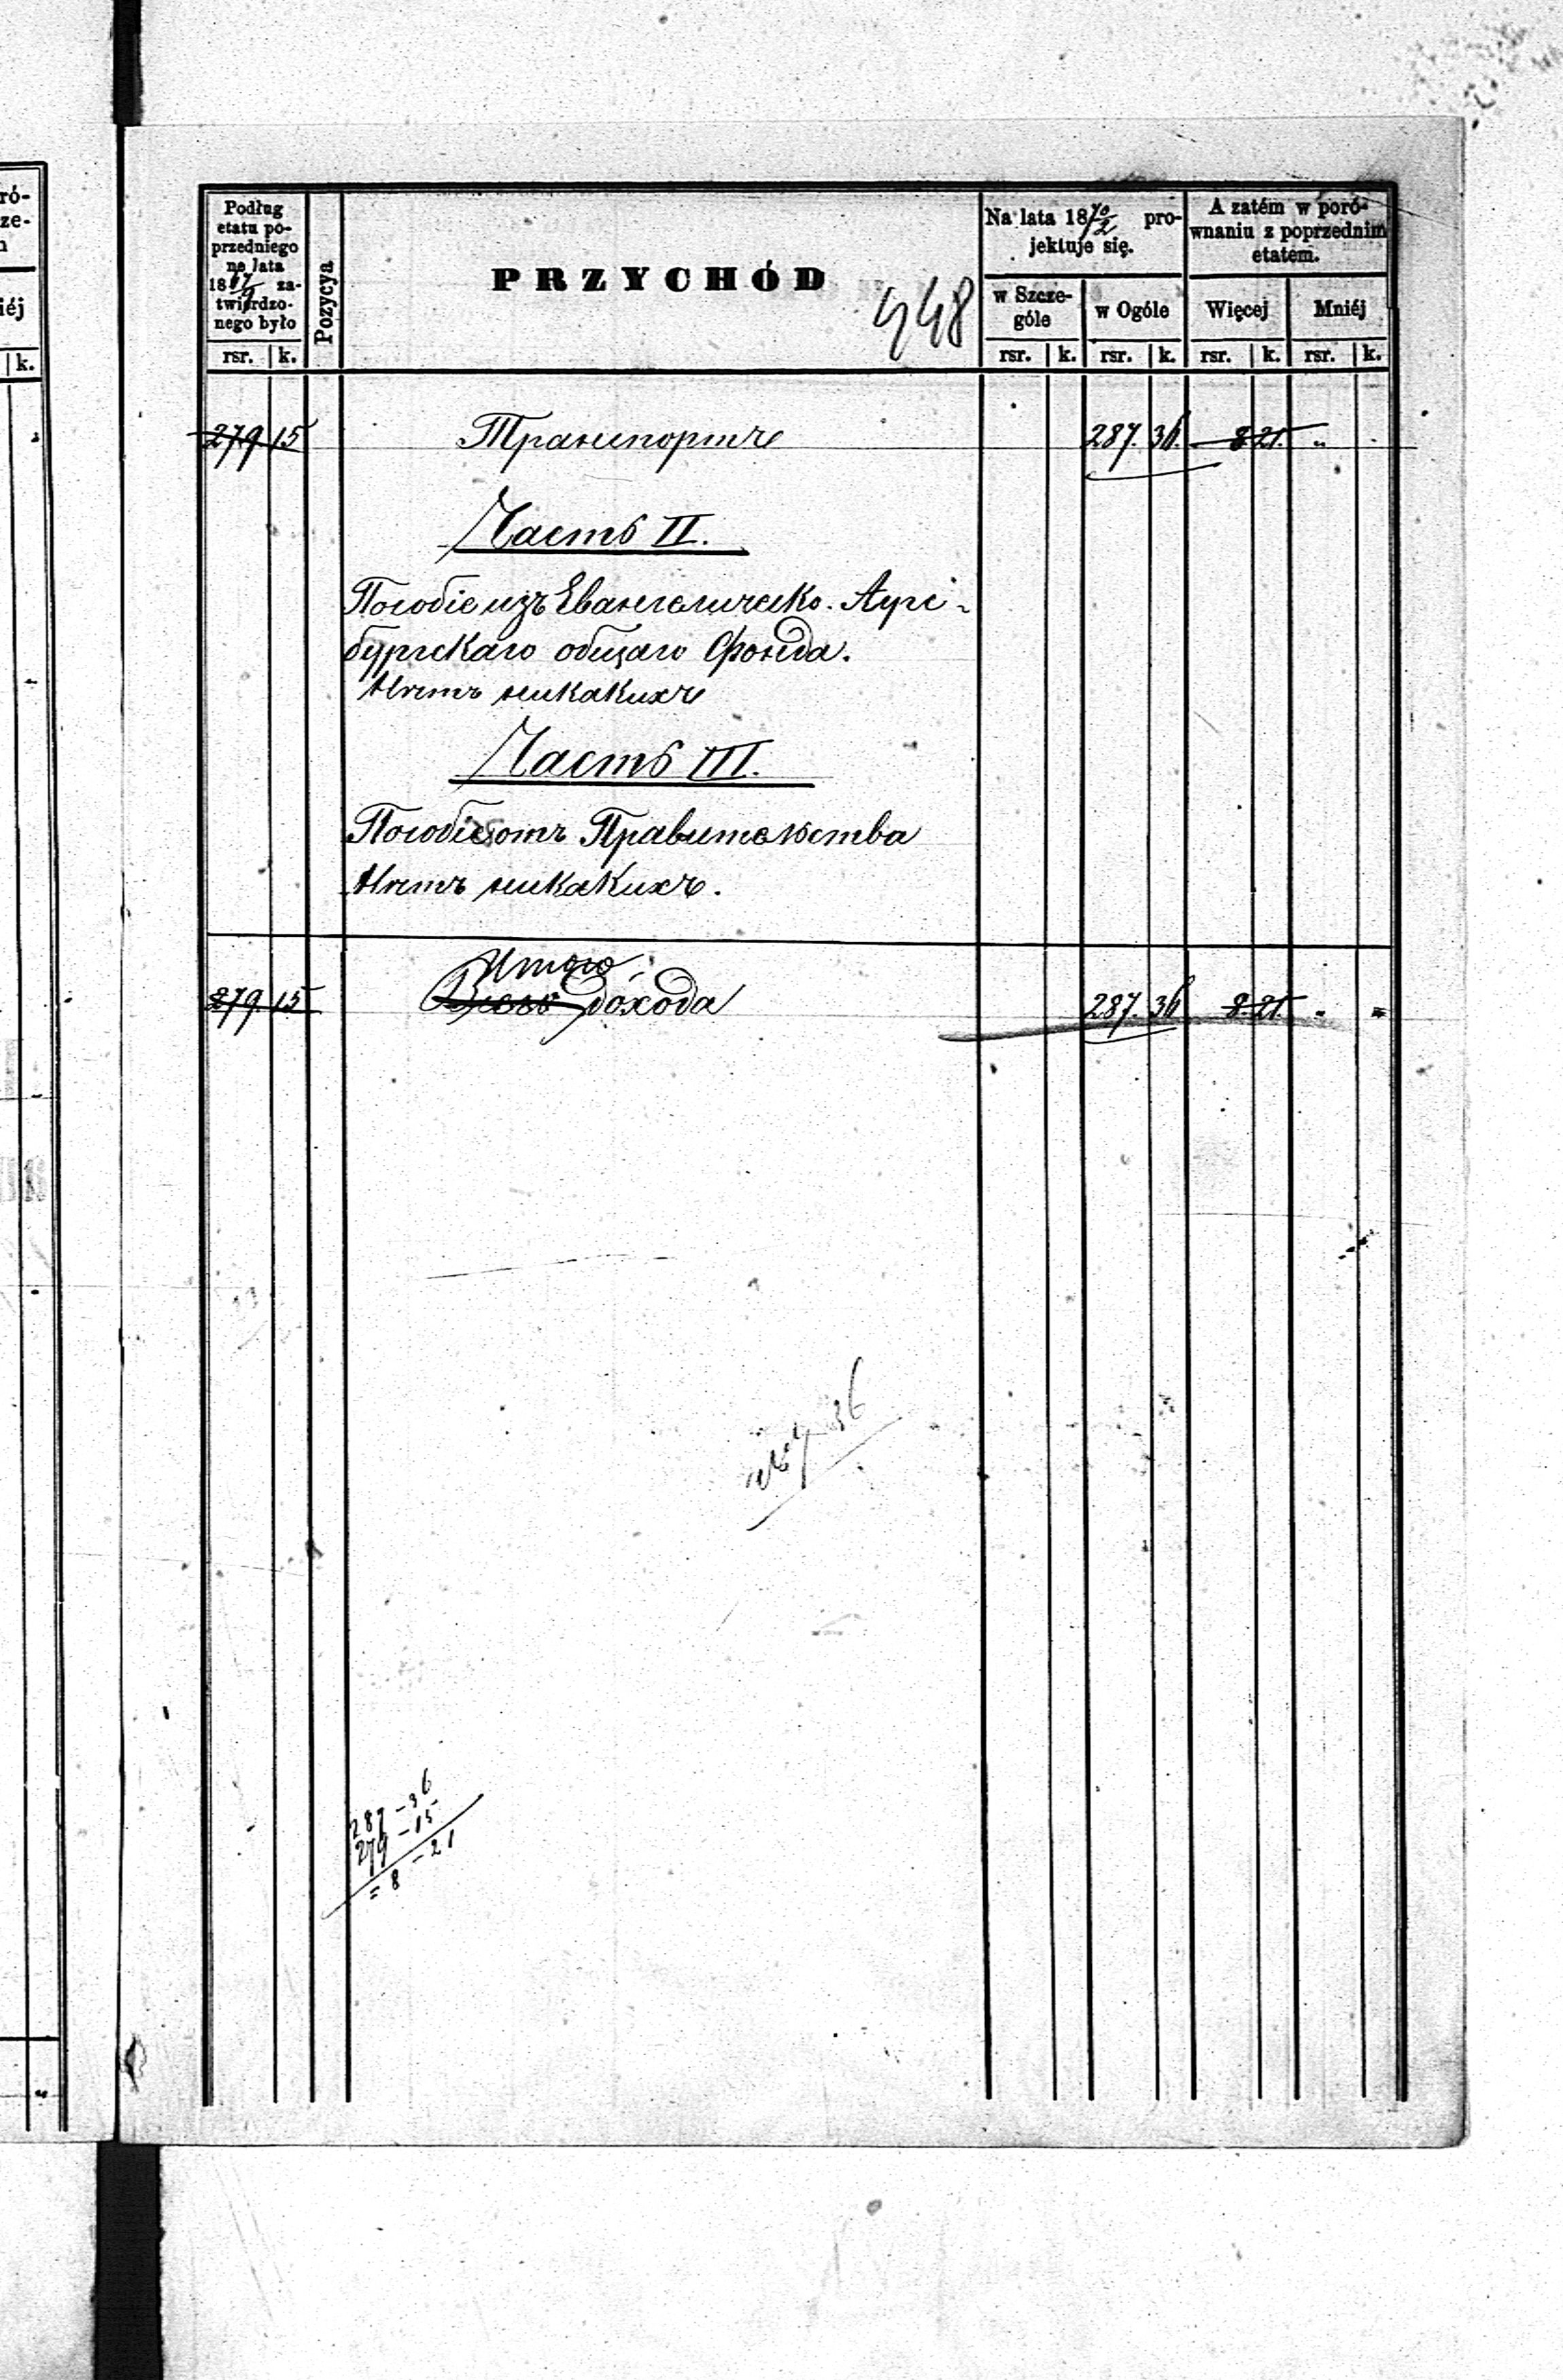 ró-
ze-
iéj
k.
Podług
etatu po-
przedniego
na lata
1867/9 za-
twierdzo-
nego było
rsr. k.
Pozycya
PRZYCHÓD
448
Na lata 1870/2 pro-
jektuje się.
w Szcze-
góle
w Ogóle
rsr. k. rsr. k.
A zatém w poró-
wnaniu z poprzednim
etatem.
Więcej Mniéj
rsr. k. rsr. k.
279 15 Транспортъ 287. 36. 8 21. „ .
Часть II.
Пособіе изъ Евангелическо. Аугс-
бургскаго общаго Фонда.
Нѣтъ никакихъ
Часть III.
Пособіе отъ Правительства
Нѣтъ никакихъ.
Итого:
279. 15 дохода 287. 36 8. 21. „ „
287 36
287 – 36
279 – 15
= 8 – 21